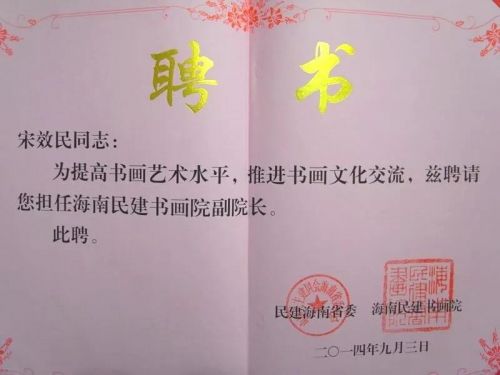 聘 书
宋效民同志：
为提高书画艺术水平，推进书画文化交流，兹聘请
您担任海南民建书画院副院长。
此聘。
民建海南省委 海南民建书画院
二〇一四年九月三日